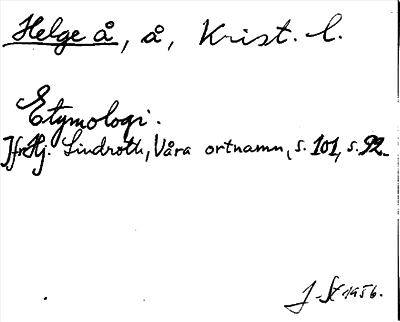 Helge å, å, Krist. l.
Etymologi.
Jfr Hj. Lindroth, Våra ortnamn, s. 101, s. 92.
J. St 1956.